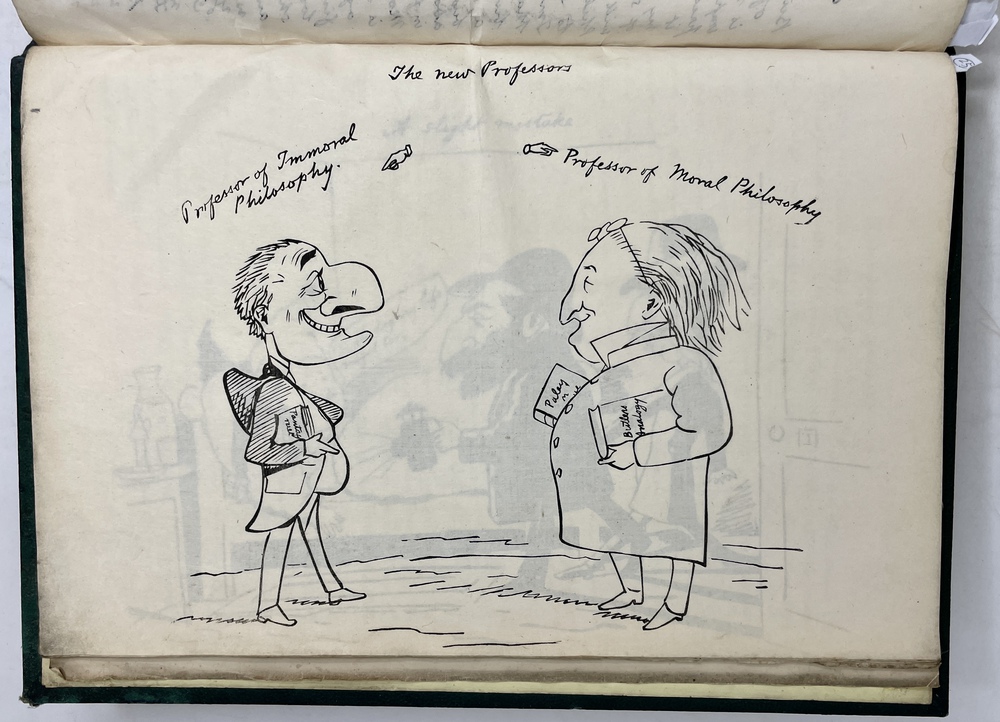 The new Professors
Professor of Immoral
Philosophy.
Professor of Moral Philosophy
Paley
Butlers
Analogy
A slight mistake